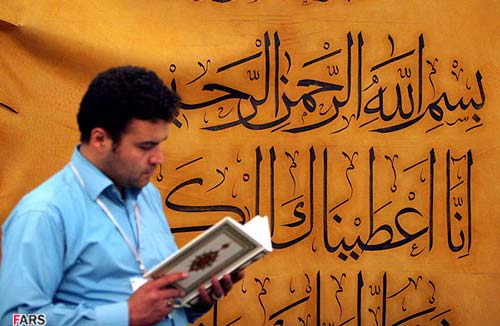 بِسْمِ اللَّهِ الرَّحْمنِ الرَّحِيـ
إِنَّا أَعْطَيْنَاكَ الْكَـ
FARS